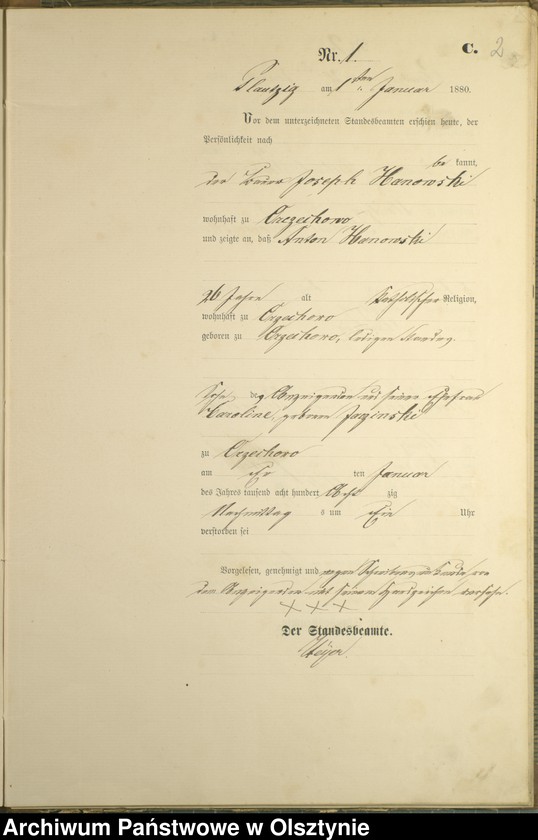 C. 2
Nr. 1.
Plautzig am 1ten Januar 1880.
Vor dem unterzeichneten Standesbeamten erschien heute, der
Persönlichkeit nach
be kannt,
der Joseph Hanowski
wohnhaft zu Orzechowo
und zeigte an, daß Anton Hanowski
26 Jahre alt katholischer Religion,
wohnhaft zu Orzechowo
geboren zu Orzechowo, ledigen Standes.
Sohn des Anzeigenden und seiner Ehefrau
Caroline geborene
zu Orzechowo
am ten Januar
des Jahres tausend acht hundert Acht zig
Nachmittag s um Ein Uhr
verstorben sei
Vorgelesen, genehmigt und wegen Schreibensunkunde von
dem Anzeigenden mit seinem Handzeichen versehen.
XXX
Der Standesbeamte.
Archiwum Państwowe w Olsztynie